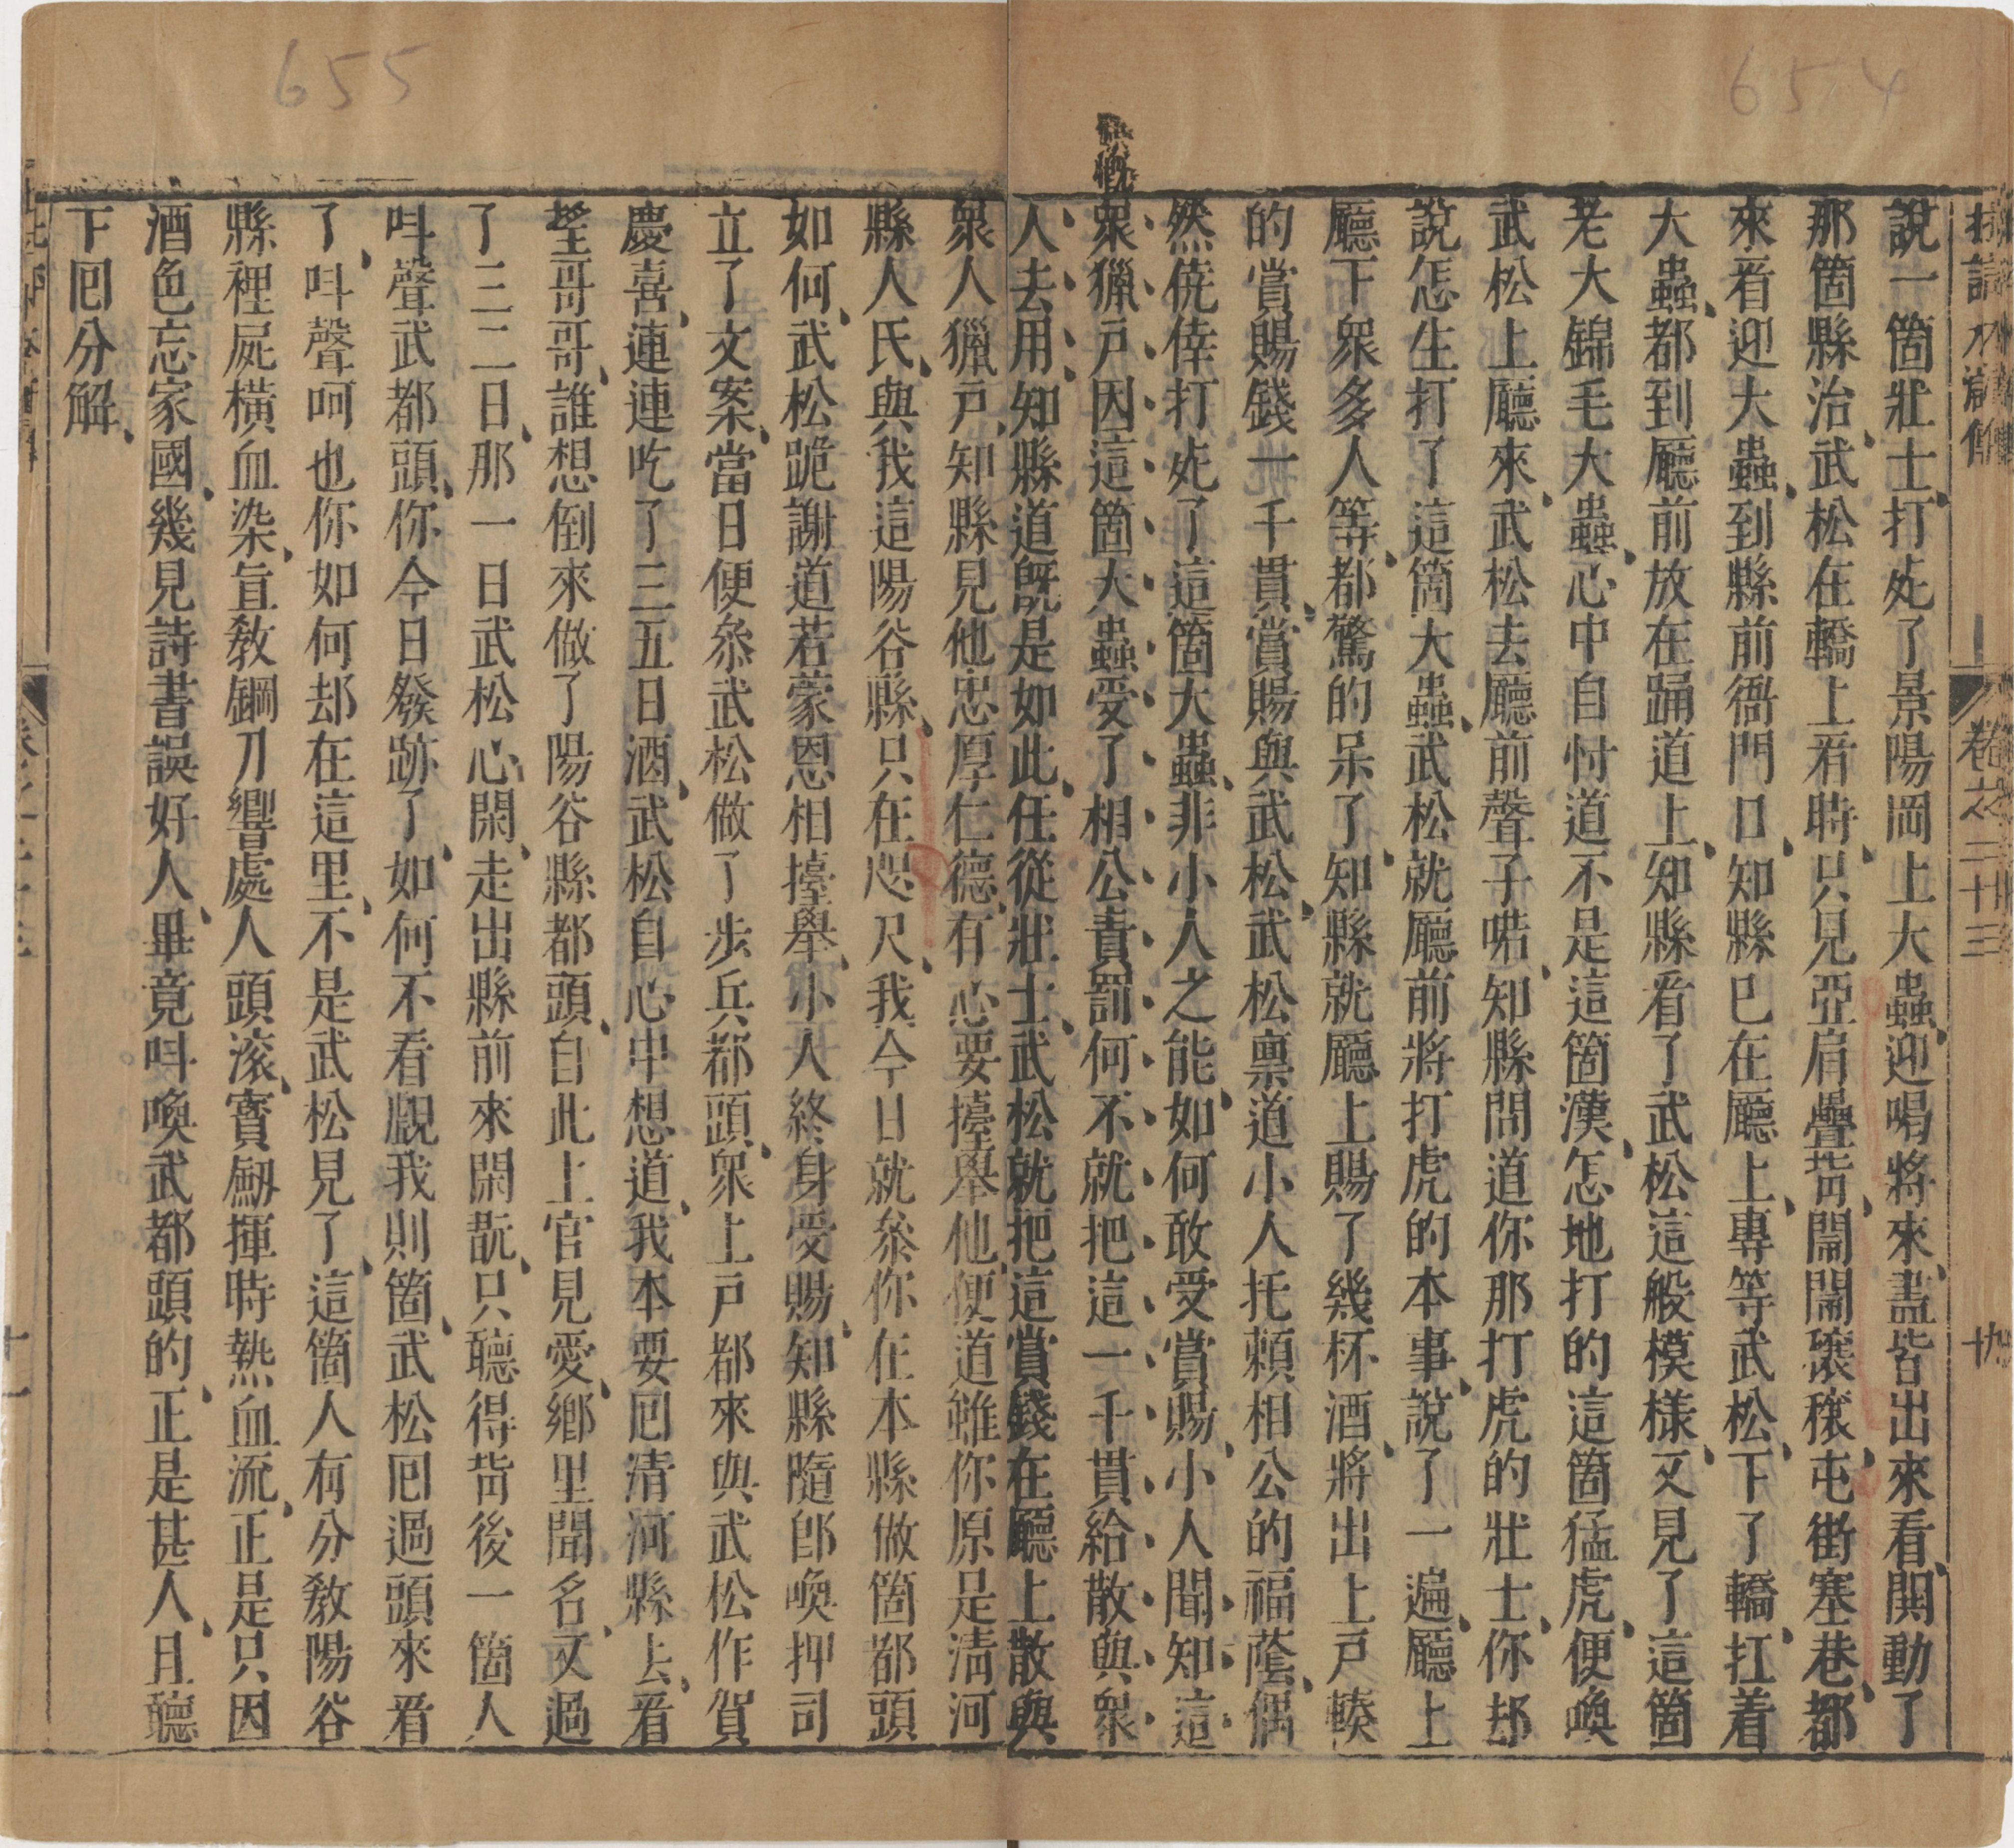 654
說一箇壯士打死了景陽岡上大蟲迎喝將來盡皆出來看閧動了
那箇縣治武松在轎上看時只見亞肩疊背鬧鬧穰穰屯街塞巷都
來看迎大蟲到縣前衙門口知縣已在廳上專等武松下了轎扛着
大蟲都到廳前放在踊道上知縣看了武松這般模樣又見了這箇
老大錦毛大蟲心中自忖道不是這箇漢怎地打的這箇猛虎便喚
武松上廳來武松去廳前聲了喏知縣問道你那打虎的壯士你却
說怎生打了這箇大蟲武松就廳前將打虎的本事說了一遍廳上
廳下衆多人等都驚的呆了知縣就廳上賜了幾杯酒將出上戶輳
的賞賜錢一千貫賞賜與武松武松禀道小人托賴相公的福蔭偶
然僥倖打死了這箇大蟲非小人之能如何敢受賞賜小人聞知這
衆獵戶因這箇大蟲受了相公責罰何不就把這一千貫給散與衆
人去用知縣道既是如此任從壯士武松就把這賞錢在廳上散與
卷之二十三
655
衆人獵戶知縣見他忠厚仁德有心要擡舉他便道雖你原是淸河
縣人氏與我這陽谷縣只在咫尺我今日就叅你在本縣做箇都頭
如何武松跪謝道若蒙恩相擡舉小人終身受賜知縣隨卽喚押司
立了文案當日便叅武松做了步兵都頭衆上戶都來與武松作賀
慶喜連連吃了三五日酒武松自心中想道我本要囘清河縣去看
望哥哥誰想倒來做了陽谷縣都頭自此上官見愛鄉里聞名又過
了三二日那一日武松心閑走出縣前來閑翫只聽得背後一箇人
呌聲武都頭你今日發跡了如何不看覷我則箇武松囘過頭來看
了呌聲呵也你如何却在這里不是武松見了這箇人有分敎陽谷
縣裡屍橫血染直敎鋼刀響處人頭滚寳劒揮時熱血流正是只因
酒色忘家國幾見詩書誤好人畢竟呌喚武都頭的正是甚人且聽
下囘分解